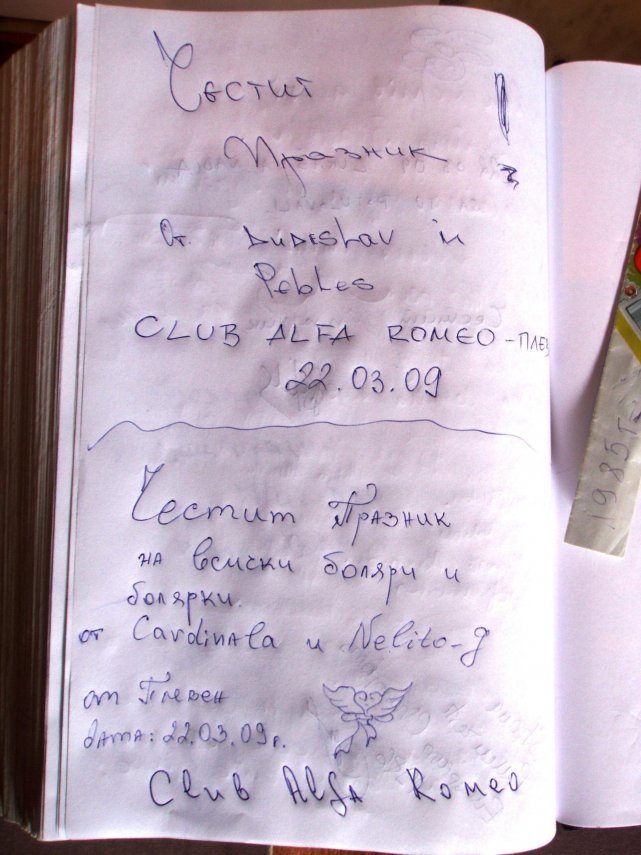 Честит
Празник
От Dudeslav и
Pebles
CLUB ALFA ROMEO - ПЛЕВ
22.03.09
Честит Празник
на всички боляри и
болярки.
от Cardinala и Nelito-g
от Плевен
дата: 22.03.09г.
Club Alfa Romeo